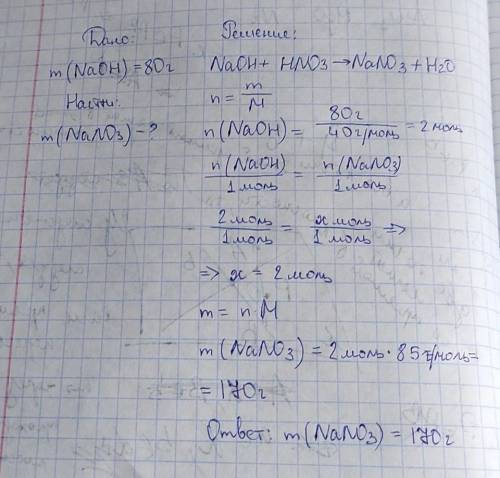 Дано:
m(NaOH)=80г
Найти:
m(NaNO3)-?
Решение:
NaOH+ HNO3→NaNO3+H2O
n = m/M
n(NaOH) = 80г/40г/моль = 2 моль
n(NaOH)/1 моль = n(NaNO3)/1 моль
2 моль/1 моль = x моль/1 моль =>
=> x = 2 моль
m = n·M
m(NaNO3) = 2 моль · 85 г/моль=
= 170г
Ответ: m(NaNO3) = 170г